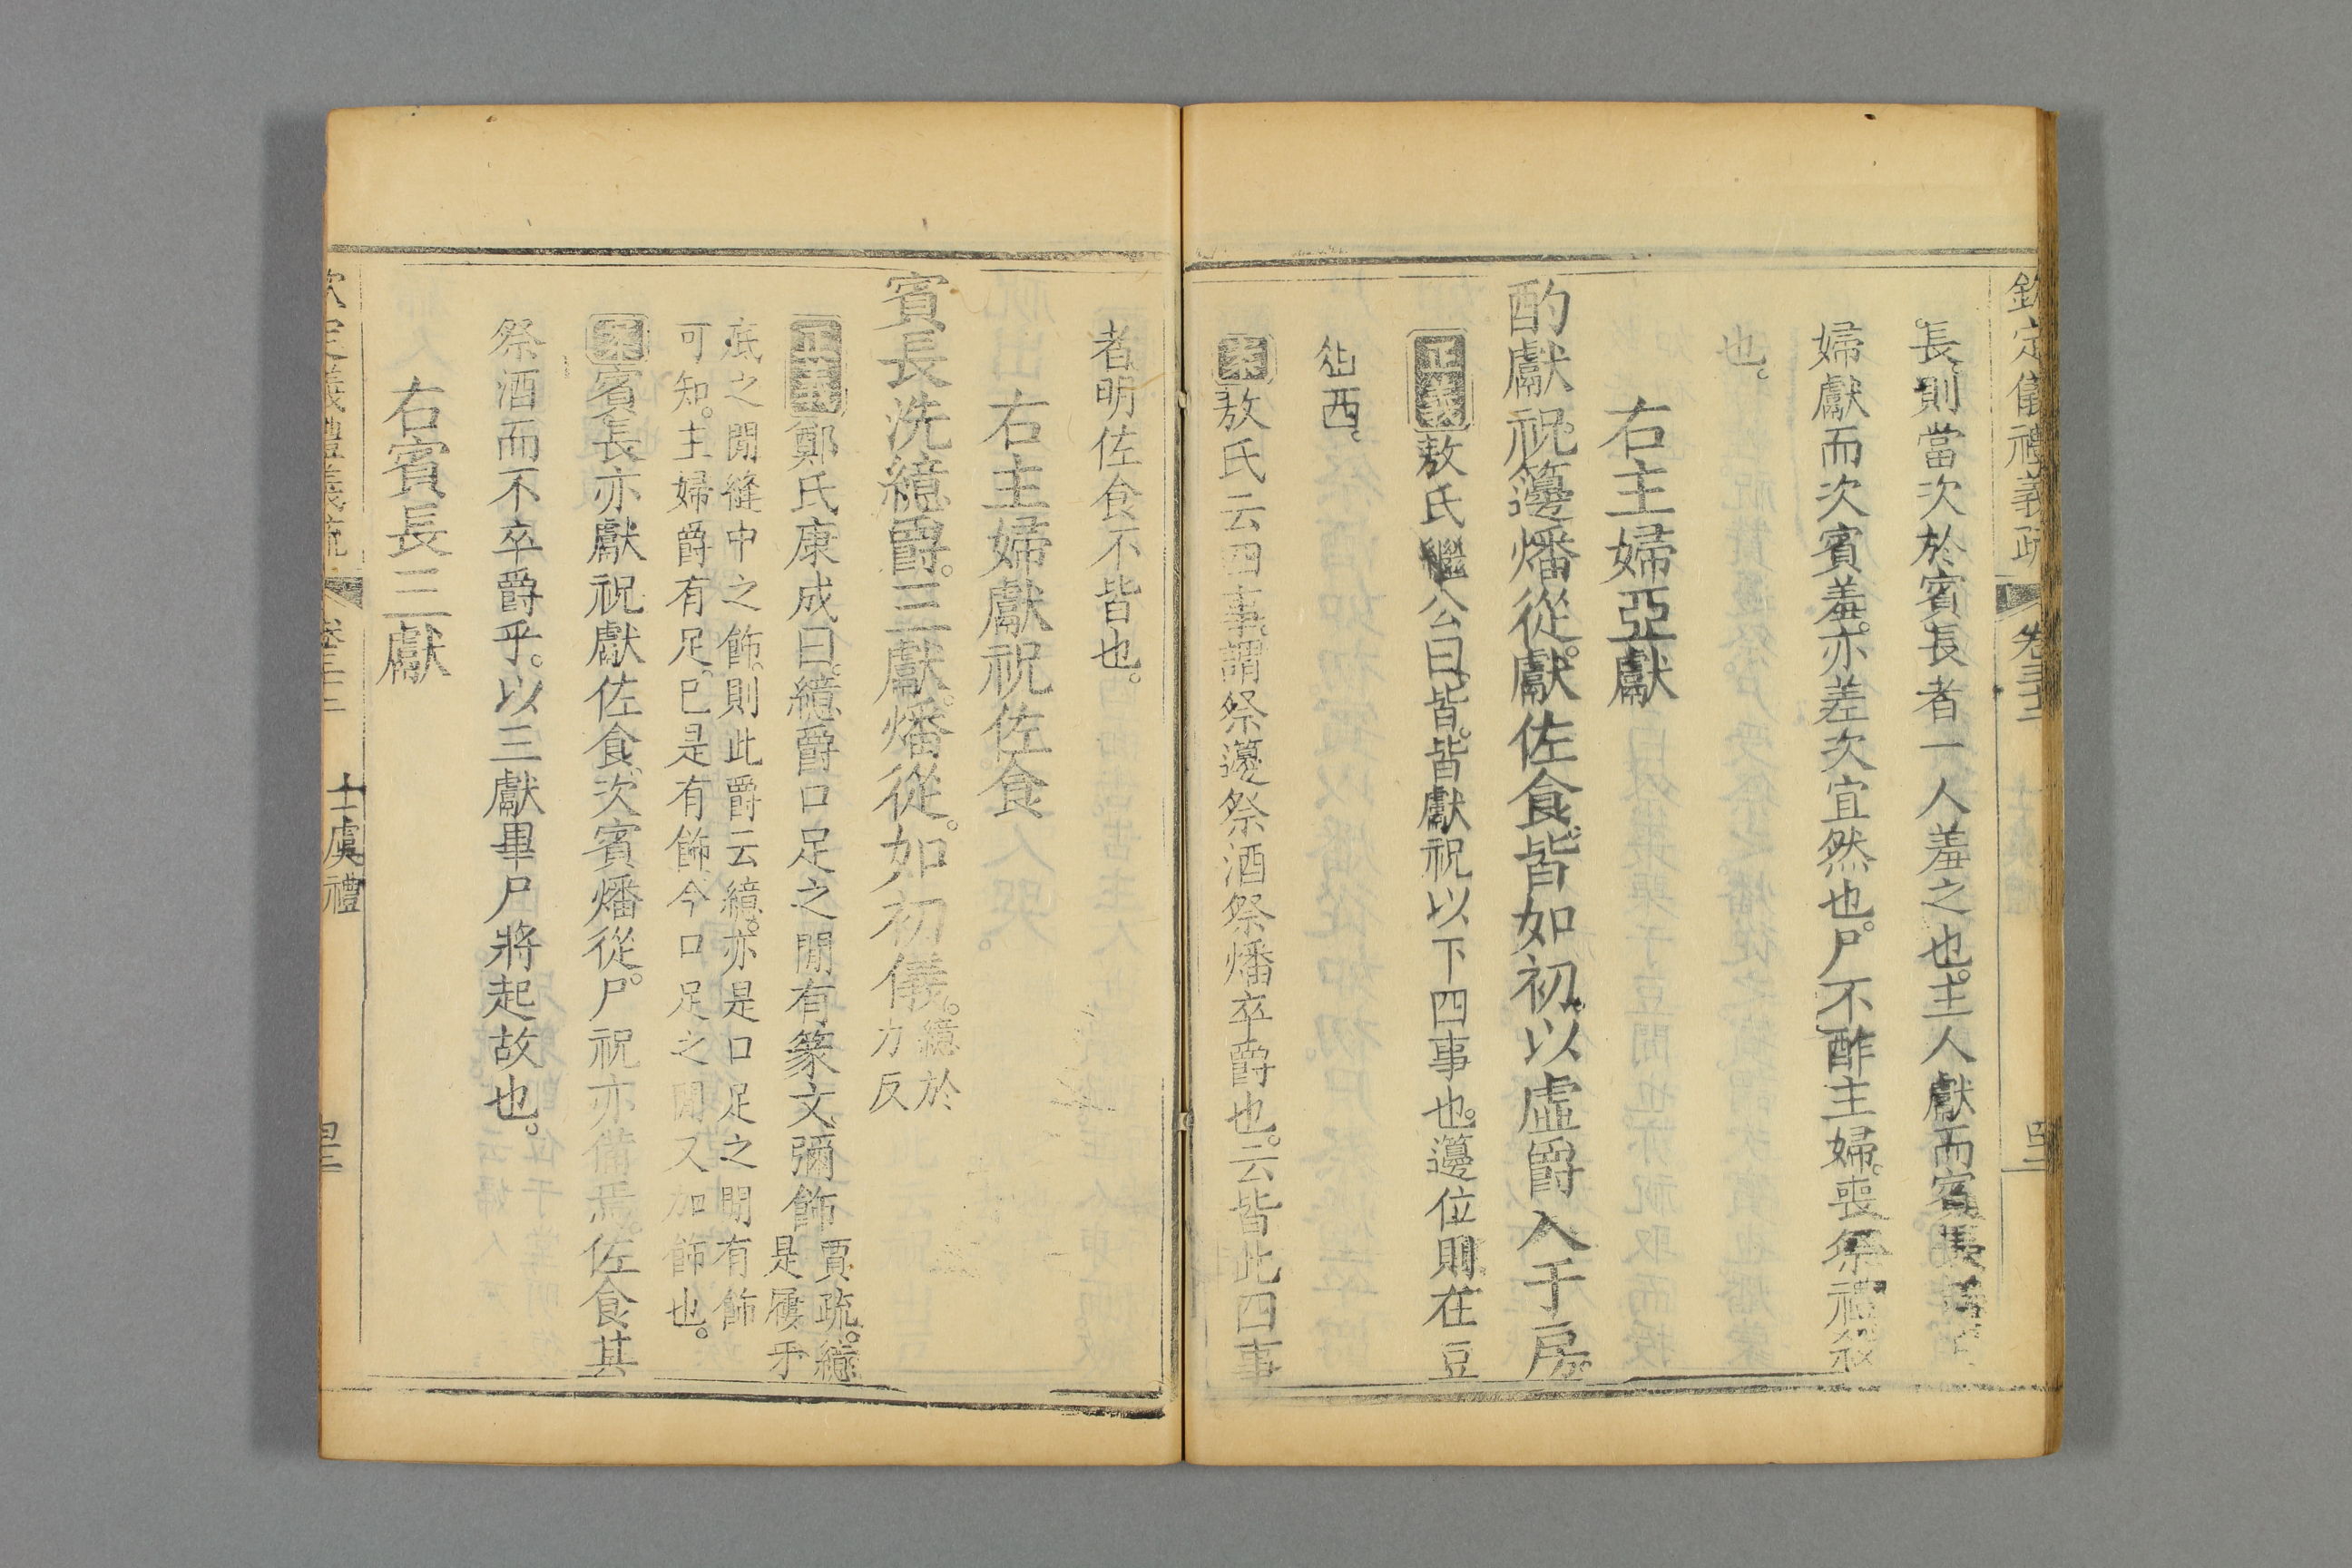 欽定儀禮義疏 卷三十三
長則當次於賓長者一人羞之也。主人獻而賓長
婦獻而次賓羞。亦差次宜然也。尸不酢主婦。喪祭禮殺
也。
右主婦亞獻
酌獻祝。籩燔從。獻佐食。皆如初。以虛爵入于房。
正義敖氏繼公曰。皆。皆獻祝以下四事也。籩位則在豆
俎西。
案敖氏云四事謂祭籩祭酒祭燔卒爵也。云皆此四事
者明佐食不皆也。
右主婦獻祝佐食
賓長洗繶爵。三獻。燔從。如初儀。繶於
力反
正義鄭氏康成曰。繶爵口足之間有篆文彌飾賈疏。繶
是屨牙
底之間縫中之飾。則此爵云繶。亦是口足之間有飾
可知。主婦爵有足。已是有飾今口足之間又加飾也。
案賓長亦獻祝獻佐食。次賓燔從。尸祝亦備焉。佐食其
祭酒而不卒爵乎。以三獻畢尸將起故也。
右賓長三獻
士虞禮